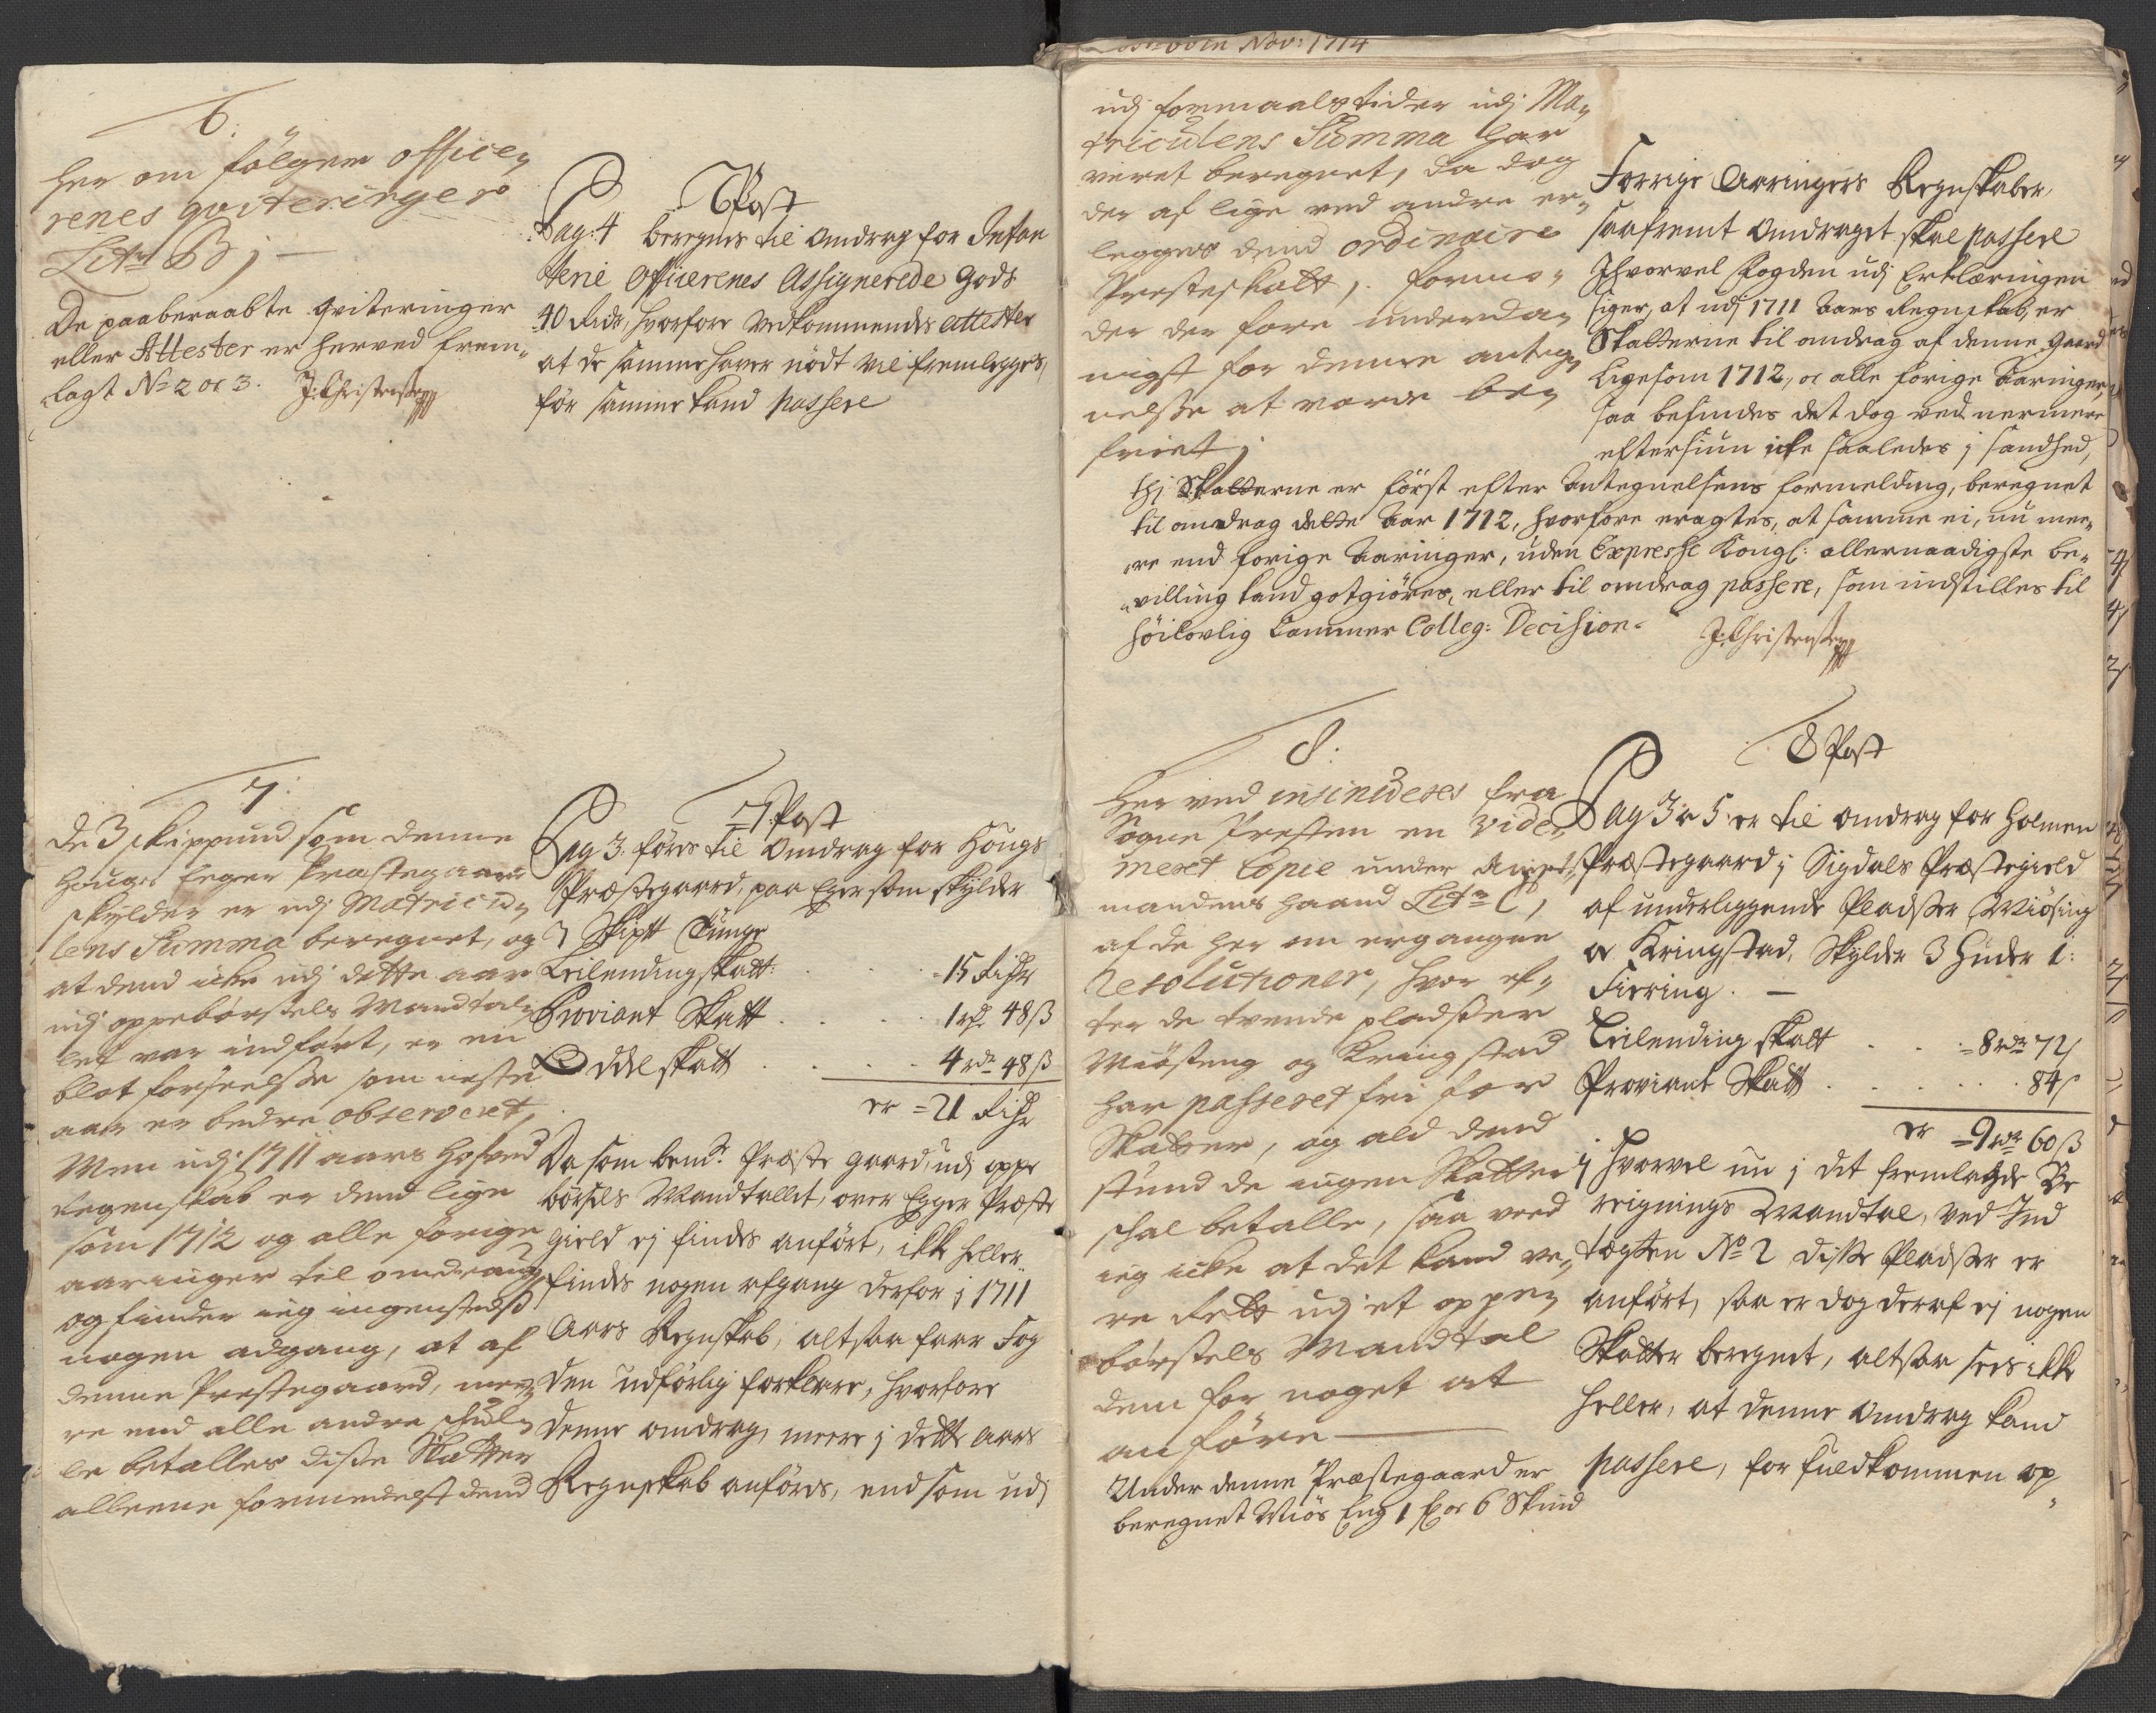 6:
her om fölgper office,,
renes qviteringer
Litr B j
De paaberaabte qviteringer
eller Attester er herved frem,,
lagt No 2 oc 3. J: Christensen
6 Post
Pag: 4 beregnes til Omdrag for Infan
terie Officerenes Assignerede Gods
40 Rdr, hvorfore vedkommendes Attester
at de samme haver nödt vil fremlegges,
för samme kand passere
7:
De 3 skippund som denne
Houges Eger Præstegaard
skylder er udj Matricu,,
lens Summa beregnet, og
at dend icke udj dette aar
udj oppebörsels Mandtal,,
let var indfört, er en
blot forseelsse som neste
aar er bedre observeret,
Men udj 1711 aars hosved
Regenskab er dend lige
som 1712 og alle forige
aaringer til omdrag,
og finder ieg ingenstedß
nogen adgang, at af
denne Prestegaard, mee,,
re end alle andre skul,,
le betalles disse Skatter
alleene formedelst dend
7 Post
Pag 3. föres til Omdrag for Hougs
Præstegaard, paa Eger som skylder
3 Skipd Tunge
Leilendingskatt: . . . = 15 Rixdr
Proviant Skatt . . . 1 rdr 48 ß
Oddelskatt . . . 4 rdr 48 ß
er = 21 Rixdr
Da som bemte Præste gaard, udj oppe
börsels Mandtallet, over Egger Præste
gield ej findes anfört, ikke heller
findes nogen afgang derfor j 1711
Aars Regnskab, altsaa faar Fog
den udförlig forklare, hvorfore
denne omdrag, meere j dette aars
Regnskab anföres, end som udj
udj formaalstider udj Ma,,
triculens Summa har
veret beregnet, da dog
der af lige ved andre er,,
legges dend ordinaire
Presteskatt, formo,,
der der fore underda,,
nigst for denne anteg,,
nelsse at vorde be,,
friet j
Forrige Aaringers Regnskaber,
saafremt Omdraget skal passere
Ihvorvel Fogden udj Erklæringen
siger, at udj 1711 Aars Regnskab, er
Skatterne til omdrag af denne Gaard
Ligesom 1712, oc alle forige Aaringer,
saa befindes det dog ved nermere
eftersiun icke saaledes j sandhed,
thi Skatterne er först efter Antegnelsens formelding, beregnet
til omdrag dette Aar 1712, hvorfore eragtes, at samme ei, nu mee,,
re end forige Aaringer, uden Expresse Kongl: allernaadigste be,,
villing kand gotgiöres, eller til omdrag passere, som indstilles til
höilovlig Cammer Colleg: Decision. J: Christensen
8:
Her ved insinueres fra
Sogne Presten en vide,,
meret Copie under Ampt,,
mandens haand Litr C,
af de her om ergangne
Resolutioner, hvor ef,,
ter de tvende pladsser
Miösteng og Kringstad
har passeret fri for
Skatter, og ald dend
stund de ingen Skatter
skal betalle, saa veed
ieg icke at det kand ve,,
re Rett udj et oppe,,
börsels Mandtal
dem for noget at
anföre
Under denne Præstegaard er
beregnet Miös Eng 1 fr oc 6 Skind
8 Post
Pag 3 a 5 er til omdrag for Holmen
Præstegaard j Sigdals Præstegield
af underliggende Pladsser Miösing
oc Kringstad, Skylder 3 Huder 1:
Fiering.
Leilending skatt . . . = 8 rdr 72 ß
Proviant Skatt . . . 84 ß
er = 9 rdr 60 ß
Ihvorvel nu j det fremlagde Be
reignings Mandtal, ved Ind
tægten No 2 disse Pladsser er
anfört, saa er dog deraf ej nogen
Skatter beregnet, altsaa sees ikke
heller, at denne omdrag kand
passere, for fuldkommen op